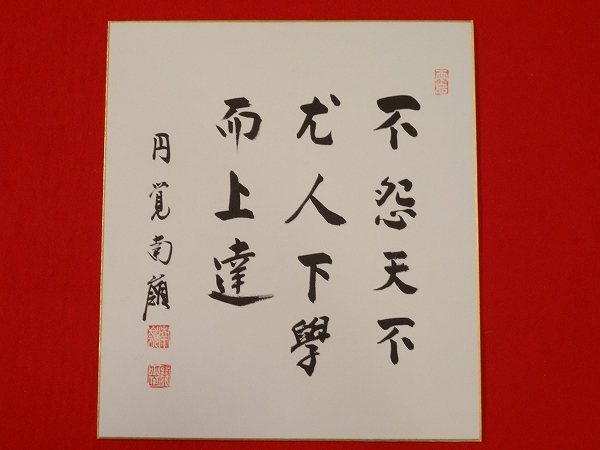 不怨天不
尤人下學
而上達
円覚南嶺